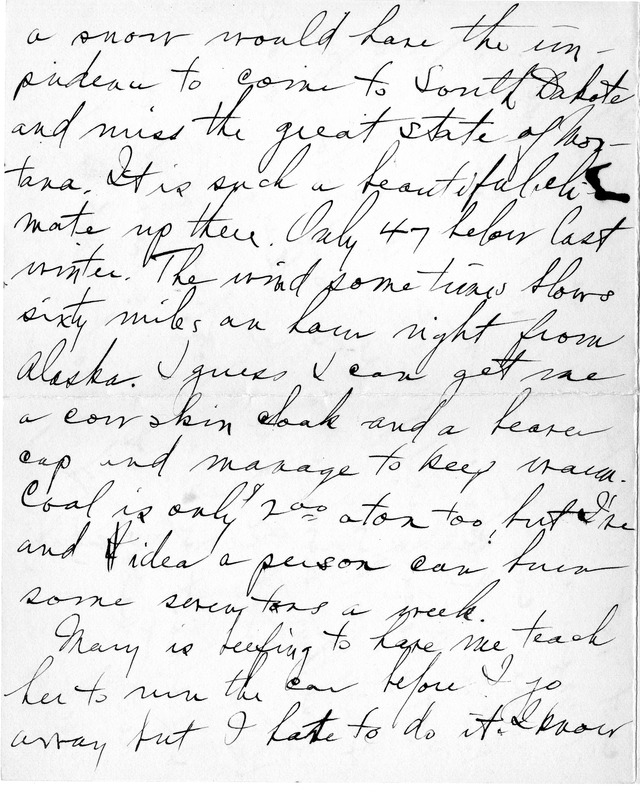 a snow would have the im-
pudence to come to South Dakota
and miss the great state of Mon-
tana. It is such a beautiful cli-
mate up there. Only 47 below last
winter. The wind sometimes blows
sixty miles an hour right from
Alaska. I guess I can get me
a cow skin cloak and a beaver
cap and manage to keep warm.
Coal is only $2.00 a ton too, but I've
and idea a person can burn
some seven tons a week.
Mary is beefing to have me teach
her to run the car before I go
away but I hate to do it. I know